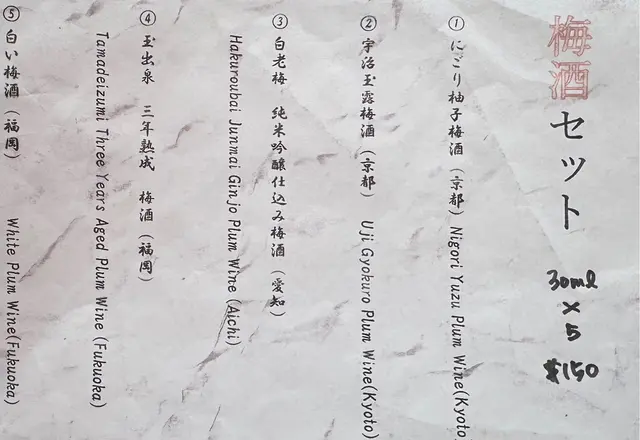 梅酒セット 30ml × 5 $150
① にごり柚子梅酒 (京都) Nigori Yuzu Plum Wine(Kyoto
② 宇治玉露梅酒 (京都) Uji Gyokuro Plum Wine(Kyoto)
③ 白老梅 純米吟醸仕込み梅酒 (愛知)
Hakuroubai Junmai Ginjo Plum Wine (Aichi)
④ 玉出泉 三年熟成 梅酒 (福岡)
Tamadeizumi Three Years Aged Plum Wine (Fukuoka)
⑤ 白い梅酒 (福岡) White Plum Wine(Fukuoka)